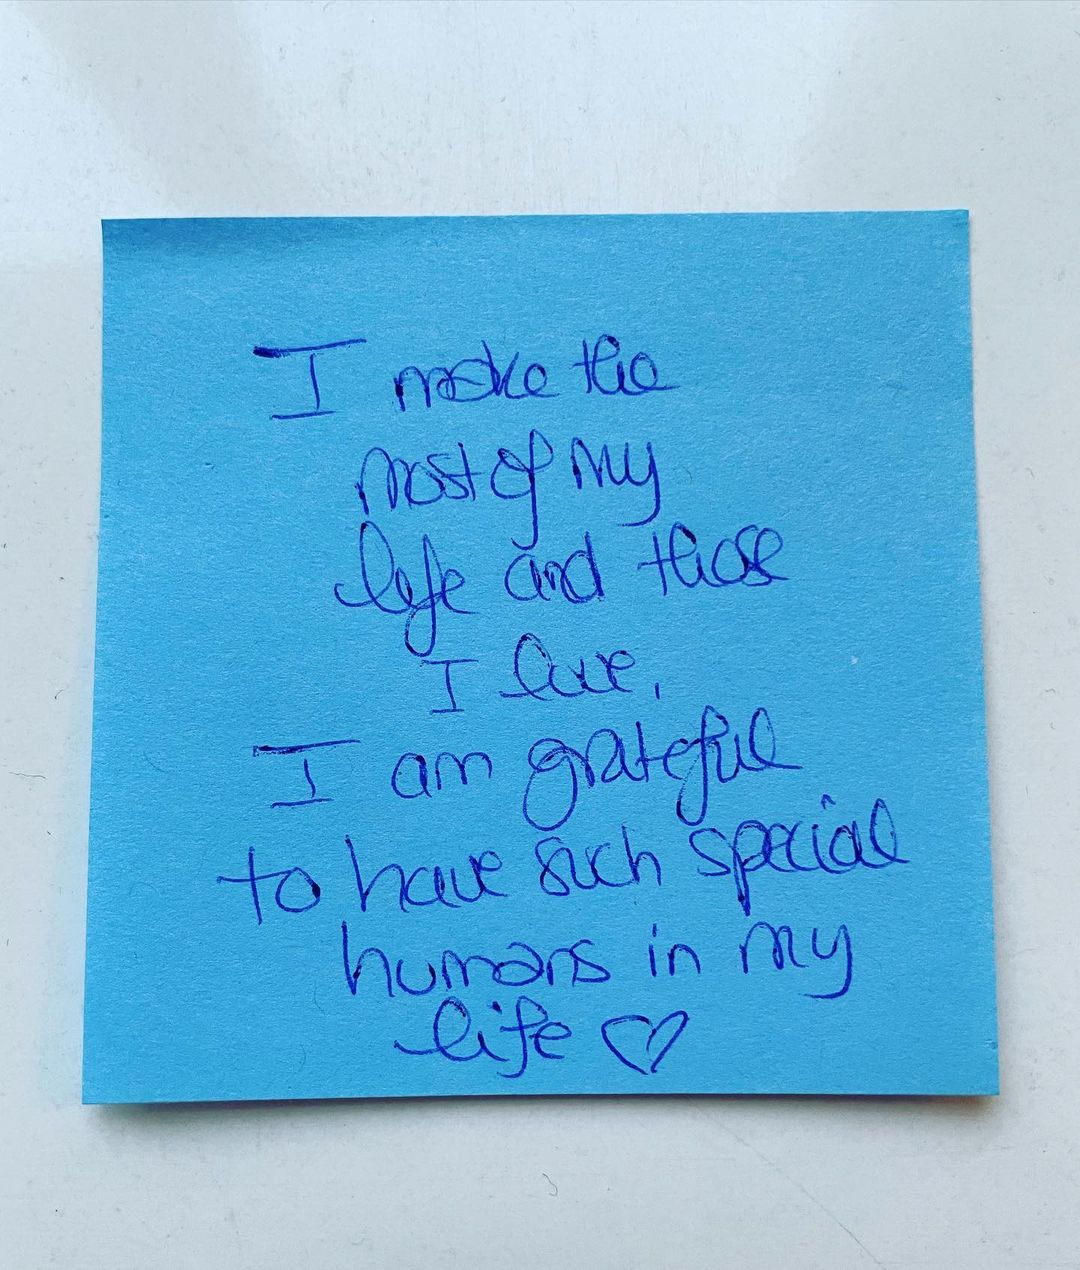 I make the
most of my
life and those
I love.
I am grateful
to have such special
humans in my
life ♡